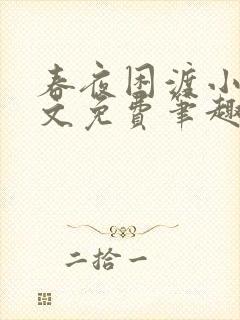 春夜困渡小
文免费笔趣
二拾一